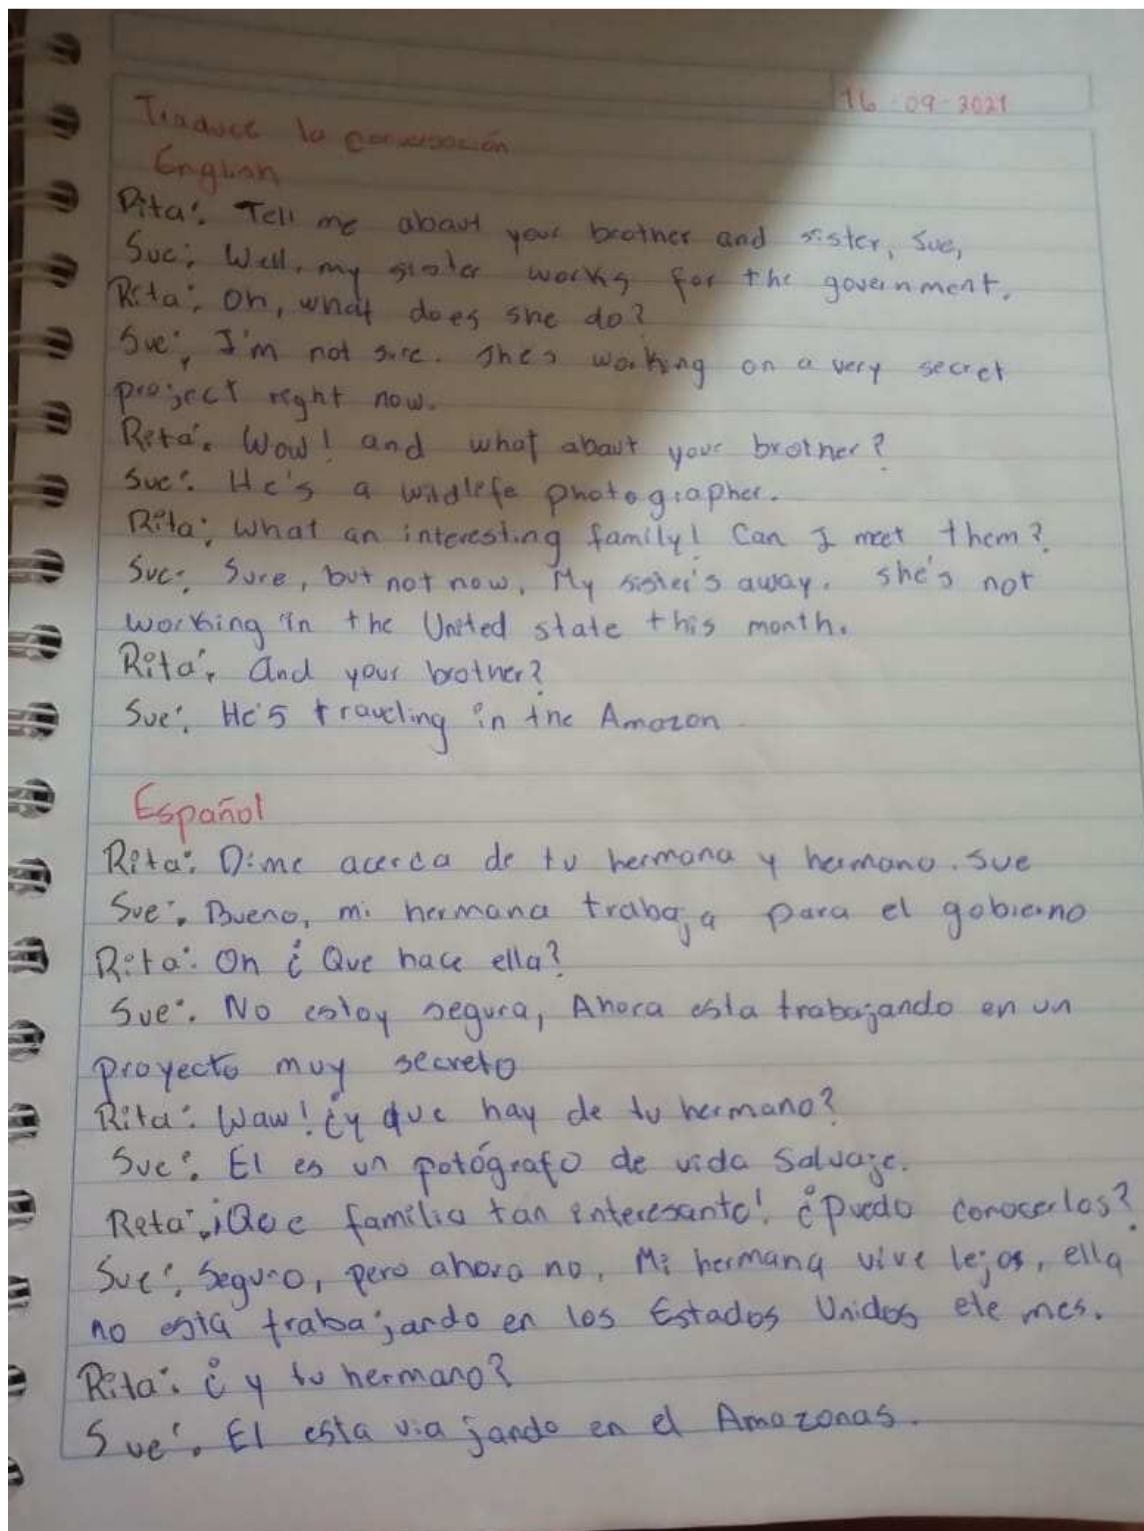 16-09-2021
Traduce la conversación
English
Rita: Tell me about your brother and sister, Sue,
Sue: Well, my sister works for the government.
Rita: Oh, what does she do?
Sue: I'm not sure. She's working on a very secret
project right now.
Rita: Wow! and what about your brother?
Sue: He's a wildlife photographer.
Rita: What an interesting family! Can I meet them?
Sue: Sure, but not now, My sister's away. she's not
working in the United state this month.
Rita: And your brother?
Sue: He's traveling in the Amazon
Español
Rita: Dime acerca de tu hermana y hermano. Sue
Sue: Bueno, mi hermana trabaja para el gobierno
Rita: Oh ¿Que hace ella?
Sue: No estoy segura, Ahora esta trabajando en un
proyecto muy secreto
Rita: Waw! ¿y que hay de tu hermano?
Sue: El es un potógrafo de vida Salvaje.
Rita: ¡Que familia tan interesante! ¿Puedo conocerlos?
Sue: Seguro, pero ahora no, Mi hermana vive lejos, ella
no está trabajando en los Estados Unidos ete mes.
Rita: ¿y tu hermano?
Sue: El esta viajando en el Amazonas.